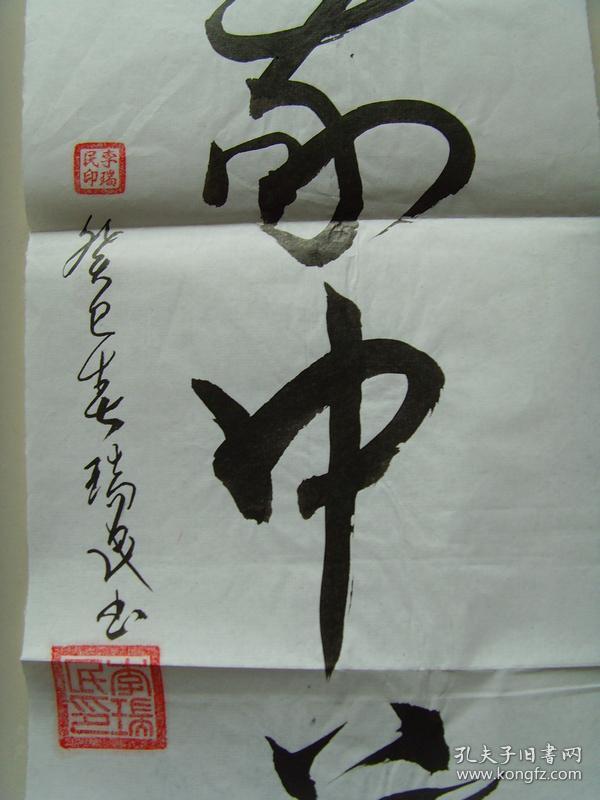 中
李瑞民印
癸巳春瑞民书
李瑞民印
孔夫子旧书网
www.kongfz.com